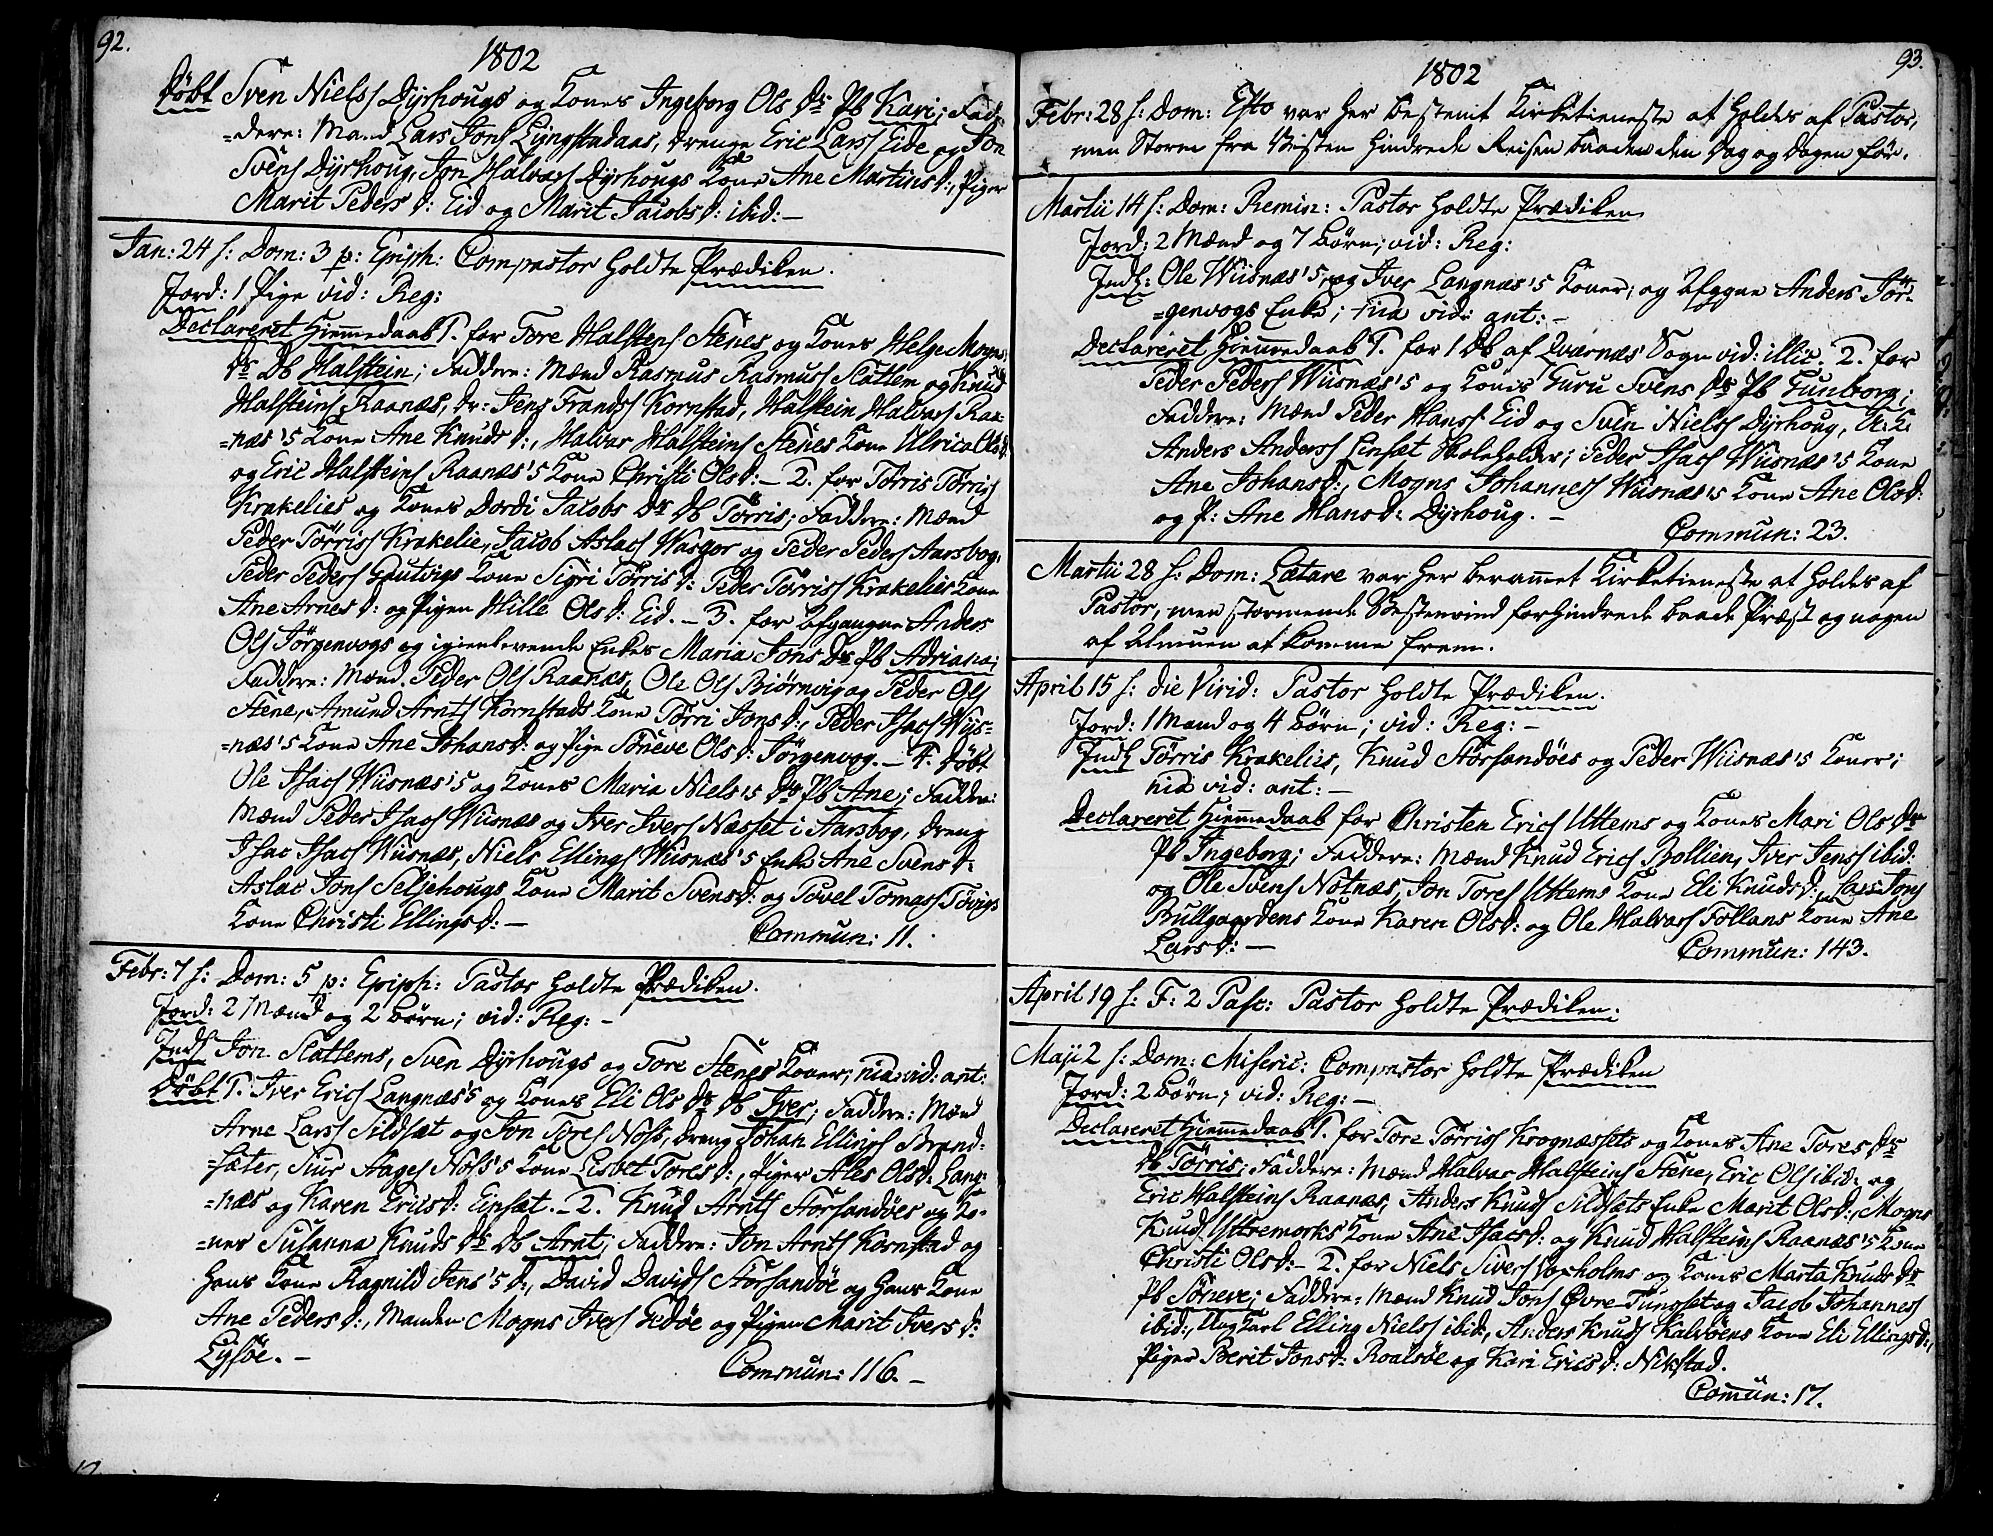 92.
1802
Döbt Sven Nielss Dyrhougs og Kones Ingeborg Ols Dr Pb Kari; Fad-
=dere: Mænd Lars Jons Lyngstadaas, Drenge Eric Larss Eide og Jon
Svens Dyrhoug, Jon Halvars Dyrhougs Kone Ane Martinsd:, Piger
Marit Pedersd: Eid og Marit Jacobsd: ibid:-
Jan: 24 s: Dom: 3 p: Epiph: Compastor holdte Prædiken.
Jord: 1 Pige vid: Reg:
Declareret Hiemmedaab 1. for Tore Halstens Stenes og Kones Helge Mogns
Dr Db Halstein; Faddere: Mænd Rasmus Rasmuss Slatlem og Knud
Halsteins Raanæs, Dr: Jens Frandss Kornstad, Halstein Halvars Raa-
=næs's Kone Ane Knudsd:, Halvar Halsteins Stenes Kone Ulrica Olsd:
og Eric Halsteins Raanæs's Kone Christi Olsd:- 2. for Törris Törriss
Krakelies og Kones Dordi Jacobs Dr Db Törris; Faddere: Mænd
Peder Törriss Krakelie, Jacob Aslacs Wasgor og Peder Peders Aarsbog,
Peder Peders Gautvigs Kone Sigri Törrisd: Peder Törriss Krakelies Kone
Ane Arnesd: og Pigen Hille Olsd: Eid. - 3. for Afgangne Anders
Ols Jörgenvogs og igienlevende Enkes Maria Jons Dr Pb Adriana;
Faddere: Mænd Peder Ols Raanæs, Ole Ols Biörnvig og Peder Ols
Stene, Amund Arnts Kornstads Kone Törri Jonsd:, Peder Isacs Wiis-
=næs's Kone Ane Johansd: og Pige Söneve Olsd: Jörgenvog. - 4. Döbt
Ole Isacs Wiisnæs's og Kones Maria Niels's Dr Pb Ane; Faddere:
Mænd Peder Isacs Wiisnæs og Iver Ivers Næsset i Aarsbog, Dreng
Isac Isacs Wiisnæs, Niels Ellings Wiisnæs's Enke Ane Svensd:
Aslac Jons Seljehougs Kone Marit Svensd: og Povel Tomas Törvigs
Kone Christi Ellingsd: -
Commun: 11.
Febr: 7 s: Dom: 5 p: Epiph: Pastor holdte Prædiken.
Jord: 2 Mænd og 2 Börn; vid: Reg: -
Indl: Jon Slatlems, Sven Dyrhougs og Tore Stenes Koner; nia vid: ant:
Döbt 1. Iver Erics Langnæs's og Kones Eli Ols Dr Db Iver; Faddere: Mænd
Arne Larss Sildsæt og Jon Tores Nols, Dreng Johan Ellings Brand-
=sæter, Siur Aages Nols's Kone Lisbet Toresd:, Piger Ales Olsd: Lang-
=næs og Karen Ericsd: Einsæt. - 2. Knud Arnts Storsandöes og Ko-
=nes Susanna Knuds Dr Db Arnt; Faddere: Jon Arnts Kornstad og
hans Kone Ragnild Jens's d:, David Davids Storsandöe og hans Kone
Ane Pedersd:, Manden Mogns Ivers Gedöe og Pigen Marit Iversd:
Lysöe. -
Commun: 116. -
93.
1802
Febr: 28 s: Dom: Esto var her bestemt Kirketieneste at holdes af Pastor,
men Storm fra Vesten hindrede Reisen baade den Dag og Dagen för.
Martii 14 s: Dom: Remin: Pastor holdte Prædiken
Jord: 2 Mænd og 7 Börn; vid: Reg:
Indl: Ole Wiisnæs's, og Iver Langnæs's Koner; og Afgagne Anders Jör-
=genvogs Enke; nia vid: ant: -
Declareret Hiemmedaab 1. for 1 Db af Qværnæs Sogn vid: illic. 2. for
Peder Peders Wiisnæs's og Kones Guru Svens Dr Pb Gunborg;
Faddere: Mænd Peder Hanss Eid og Sven Nielss Dyrhoug, U: K:
Anders Anderss Linsæt Skoleholder; Peder Isacs Wiisnæs's Kone
Ane Johansd:, Mogns Johanness Wiisnæs's Kone Ane Olsd:
og P: Ane Hansd: Dyrhoug. -
Commun: 23.
Martii 28 s: Dom: Lætare var her berammet Kirketieneste at holdes af
Pastor, men stormende Vestenvind forhindrede baade Præst og nogen
af Almuen at komme frem.
April 15 s: die Virid: Pastor holdte Prædiken.
Jord: 1 Mand og 4 Börn; vid: Reg: -
Indl Törris Krakelies, Knud Storsandöes og Peder Wiisnæs's Koner;
nia vid: ant: -
Declareret Hiemmedaab for Christen Erics Uttems og Kones Mari Ols Dr
Pb Ingeborg; Faddere: Mænd Knud Erics Bollien, Iver Jenss ibid:
og Ole Svens Notnæs, Jon Tores Uttems Kone Eli Knudsd:, Lars Jons
Bullgaardens Kone Karen Olsd: og Ole Halvars Follans Kone Ane
Larsd: -
Commun: 143.
April 19 s: F: 2 Pasc: Pastor holdte Prædiken.
Maji 2 s: Dom: Miseric: Compastor holdte Prædiken
Jord: 2 Börn; vid: Reg: -
Declareret Hiemmedaab 1. for Tore Törriss Krognæssets og Kones Ane Tores Dr
Db Törris; Faddere: Mænd Halvar Halsteins Stene, Eric Ols ibid: og
Eric Halsteins Raanæs, Anders Knuds Sildsæts Enke Marit Olsd:, Mogns
Knuds Ytremorks Kone Ane Isacsd: og Knud Halsteins Raanæs's Kone
Christi Olsd: - 2. for Niels Sivers Voxholms og Kones Marta Knuds Dr
Pb Söneve; Faddere: Mænd Knud Jons Övre-Tungset og Jacob Johanness
ibid:, Ungkarl Elling Nielss ibid:, Anders Knuds Kalvöens Kone Eli Ellingsd:,
Piger Berit Jonsd: Roalsöe og Kari Ericsd: Nikstad.
Comun: 17.